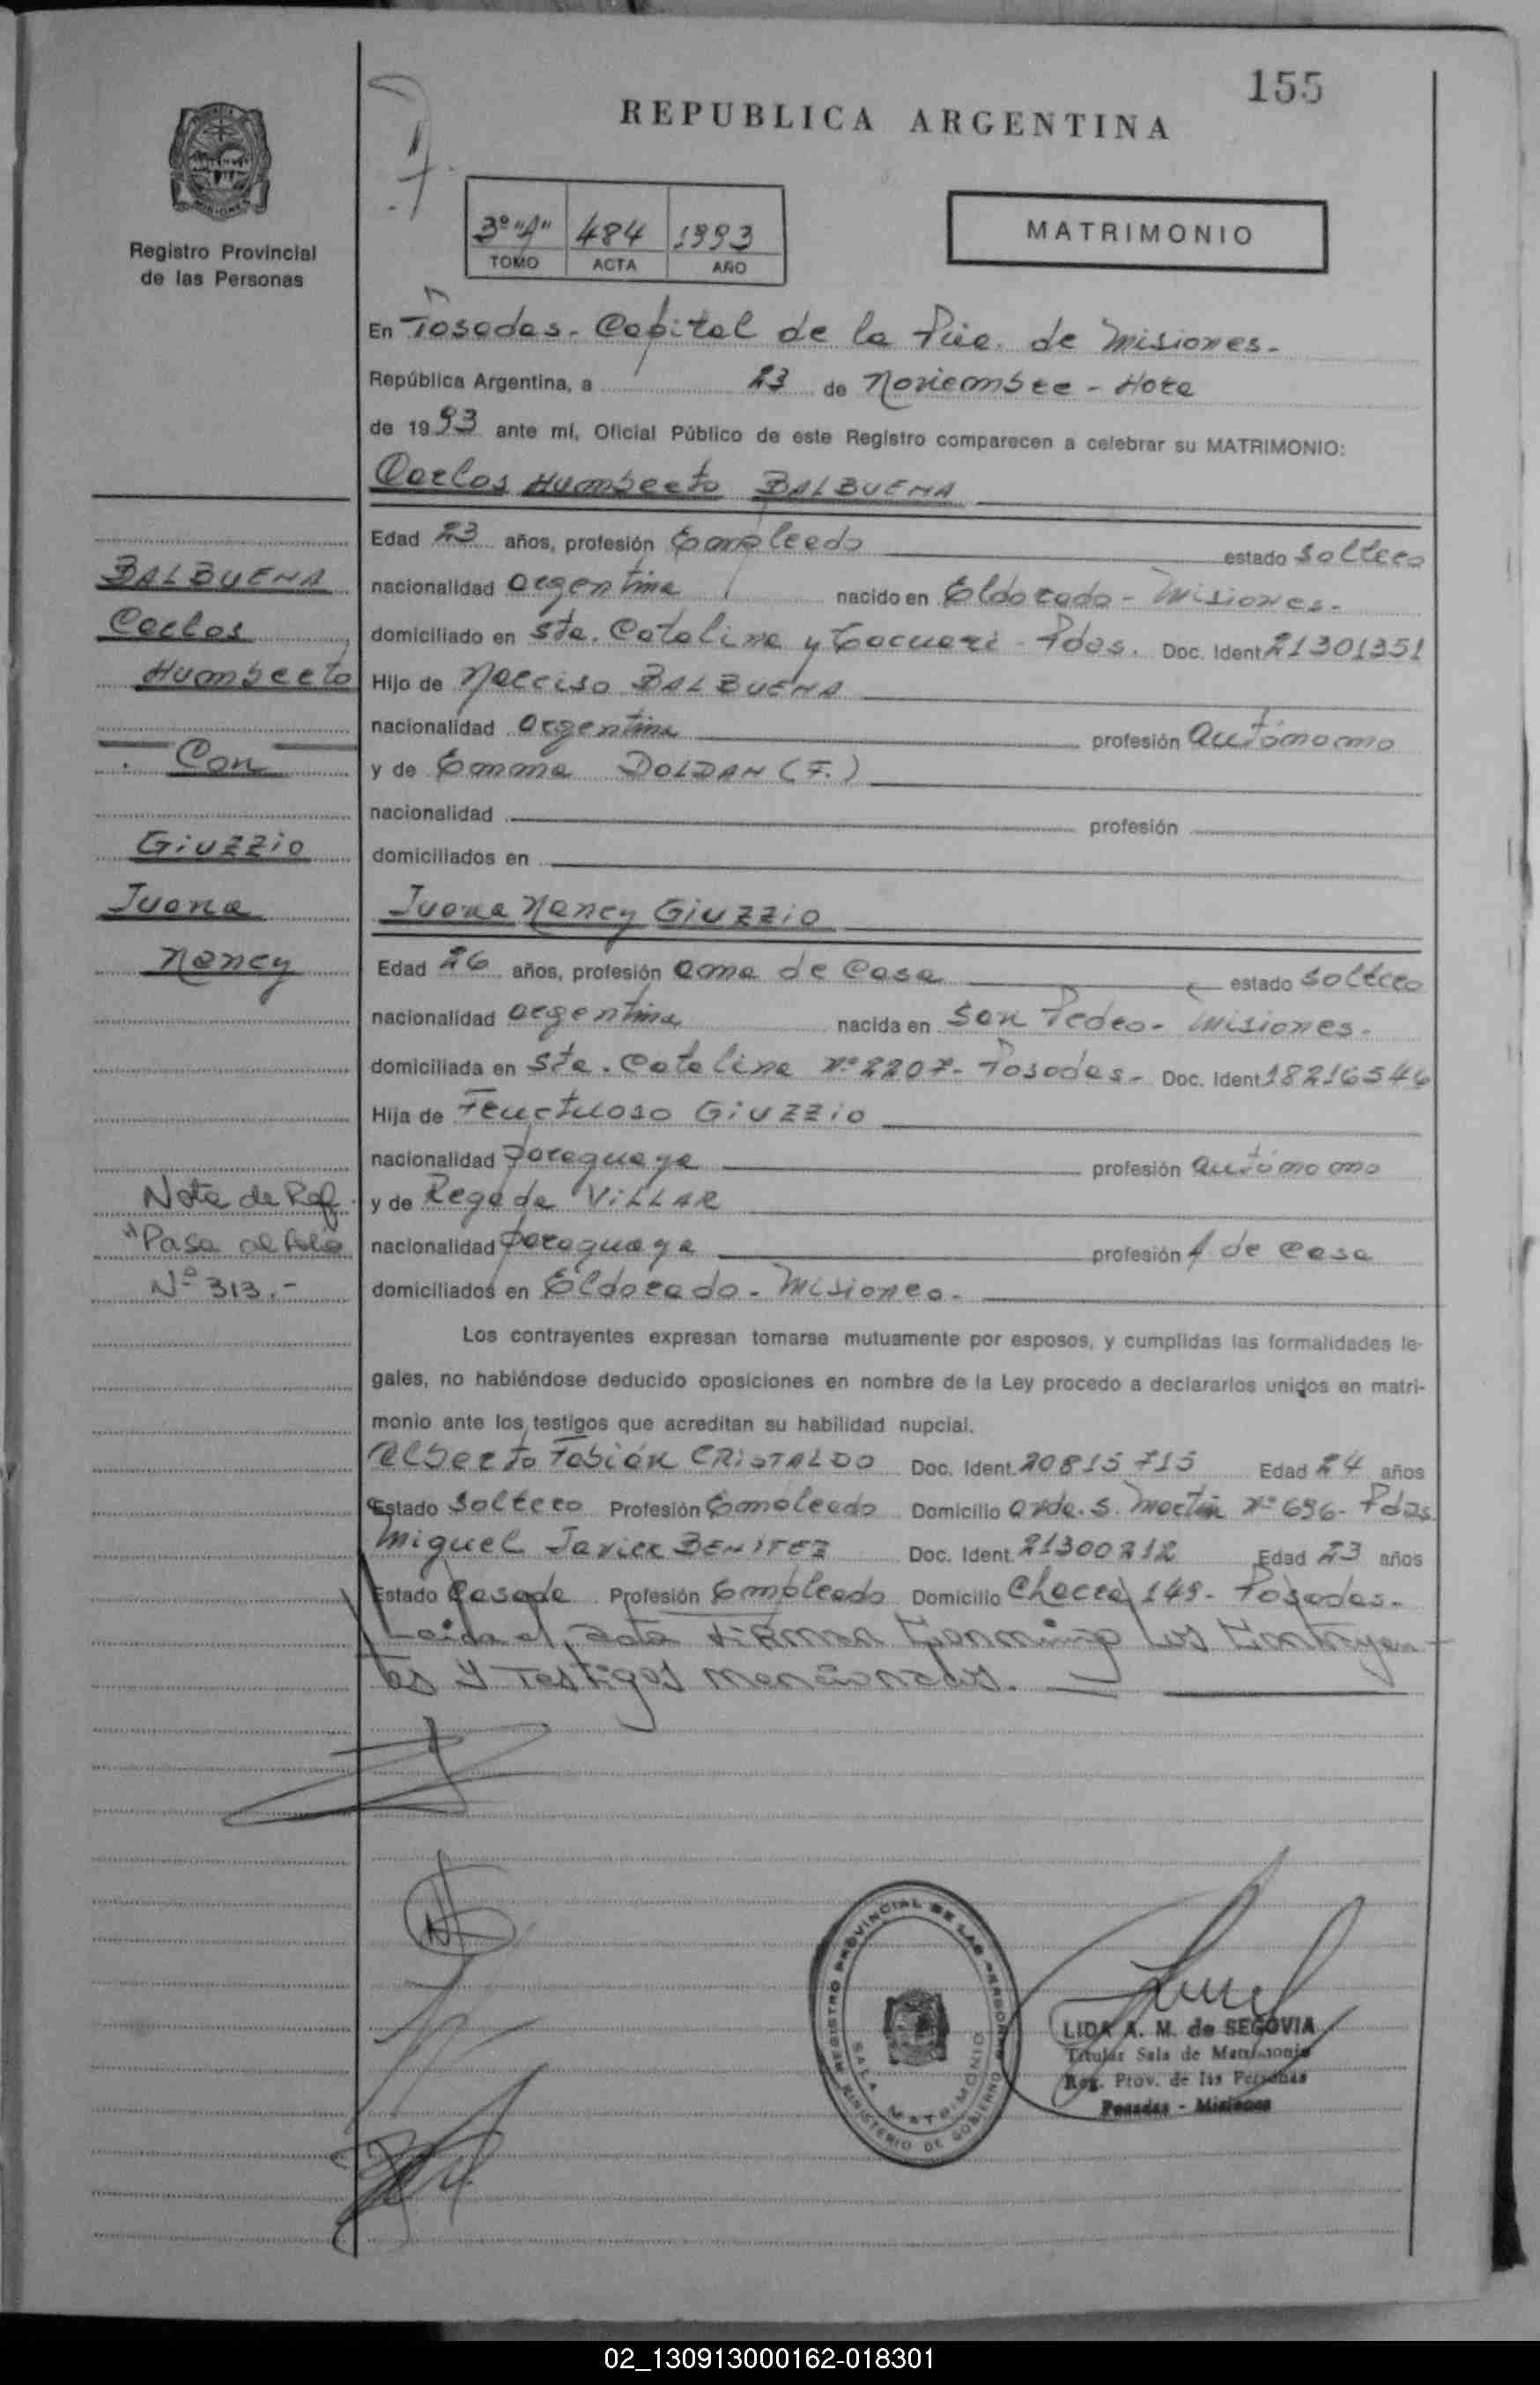 155
REPUBLICA ARGENTINA
Registro Provincial
de las Personas
3º "A" 484 1993
TOMO ACTA AÑO
MATRIMONIO
En Posadas - Capital de la Pcia. de Misiones -
República Argentina, a 23 de Noviembre - Hora
de 1993 ante mí, Oficial Público de este Registro comparecen a celebrar su MATRIMONIO:
Carlos Humberto BALBUENA
Edad 23 años, profesión Empleado estado Soltero
nacionalidad argentina nacido en Eldorado - Misiones -
domiciliado en Sta. Catalina y Tacuari - Pdas. Doc. Ident 21301351
Hijo de Narciso BALBUENA
nacionalidad argentina profesión autónomo
y de Emma DOLDAN (F.)
nacionalidad profesión
domiciliados en
Juana Nancy GIUZZIO
Edad 26 años, profesión ama de casa estado soltera
nacionalidad argentina nacida en San Pedro - Misiones -
domiciliada en Sta. Catalina Nº 2207 - Posadas - Doc. Ident 18216546
Hija de Fructuoso GIUZZIO
nacionalidad paraguaya profesión autónomo
y de Regada VILLAR
nacionalidad paraguaya profesión A. de casa
domiciliados en Eldorado - Misiones -
BALBUENA
Carlos
Humberto
Con
GIUZZIO
Juana
Nancy
Nota de Ref.
"Pasa al folio
Nº 313.-
Los contrayentes expresan tomarse mutuamente por esposos, y cumplidas las formalidades le-
gales, no habiéndose deducido oposiciones en nombre de la Ley procedo a declararlos unidos en matri-
monio ante los testigos que acreditan su habilidad nupcial.
Alberto Fabián CRISTALDO Doc. Ident. 20815715 Edad 24 años
Estado Soltero Profesión Empleado Domicilio avda. S. Martín Nº 696 - Pdas
Miguel Javier BENITEZ Doc. Ident. 21300212 Edad 23 años
Estado Casado Profesión Empleado Domicilio Chacra 149 - Posadas -
Leida el acta firman conmigo los contrayen-
tes y testigos mencionados.
REGISTRO PROVINCIAL DE LAS PERSONAS
SALA MATRIMONIO
MINISTERIO DE GOBIERNO
LIDA A. M. de SEGOVIA
Titular Sala de Matrimonio
Reg. Prov. de las Personas
Posadas - Misiones
02_130913000162-018301